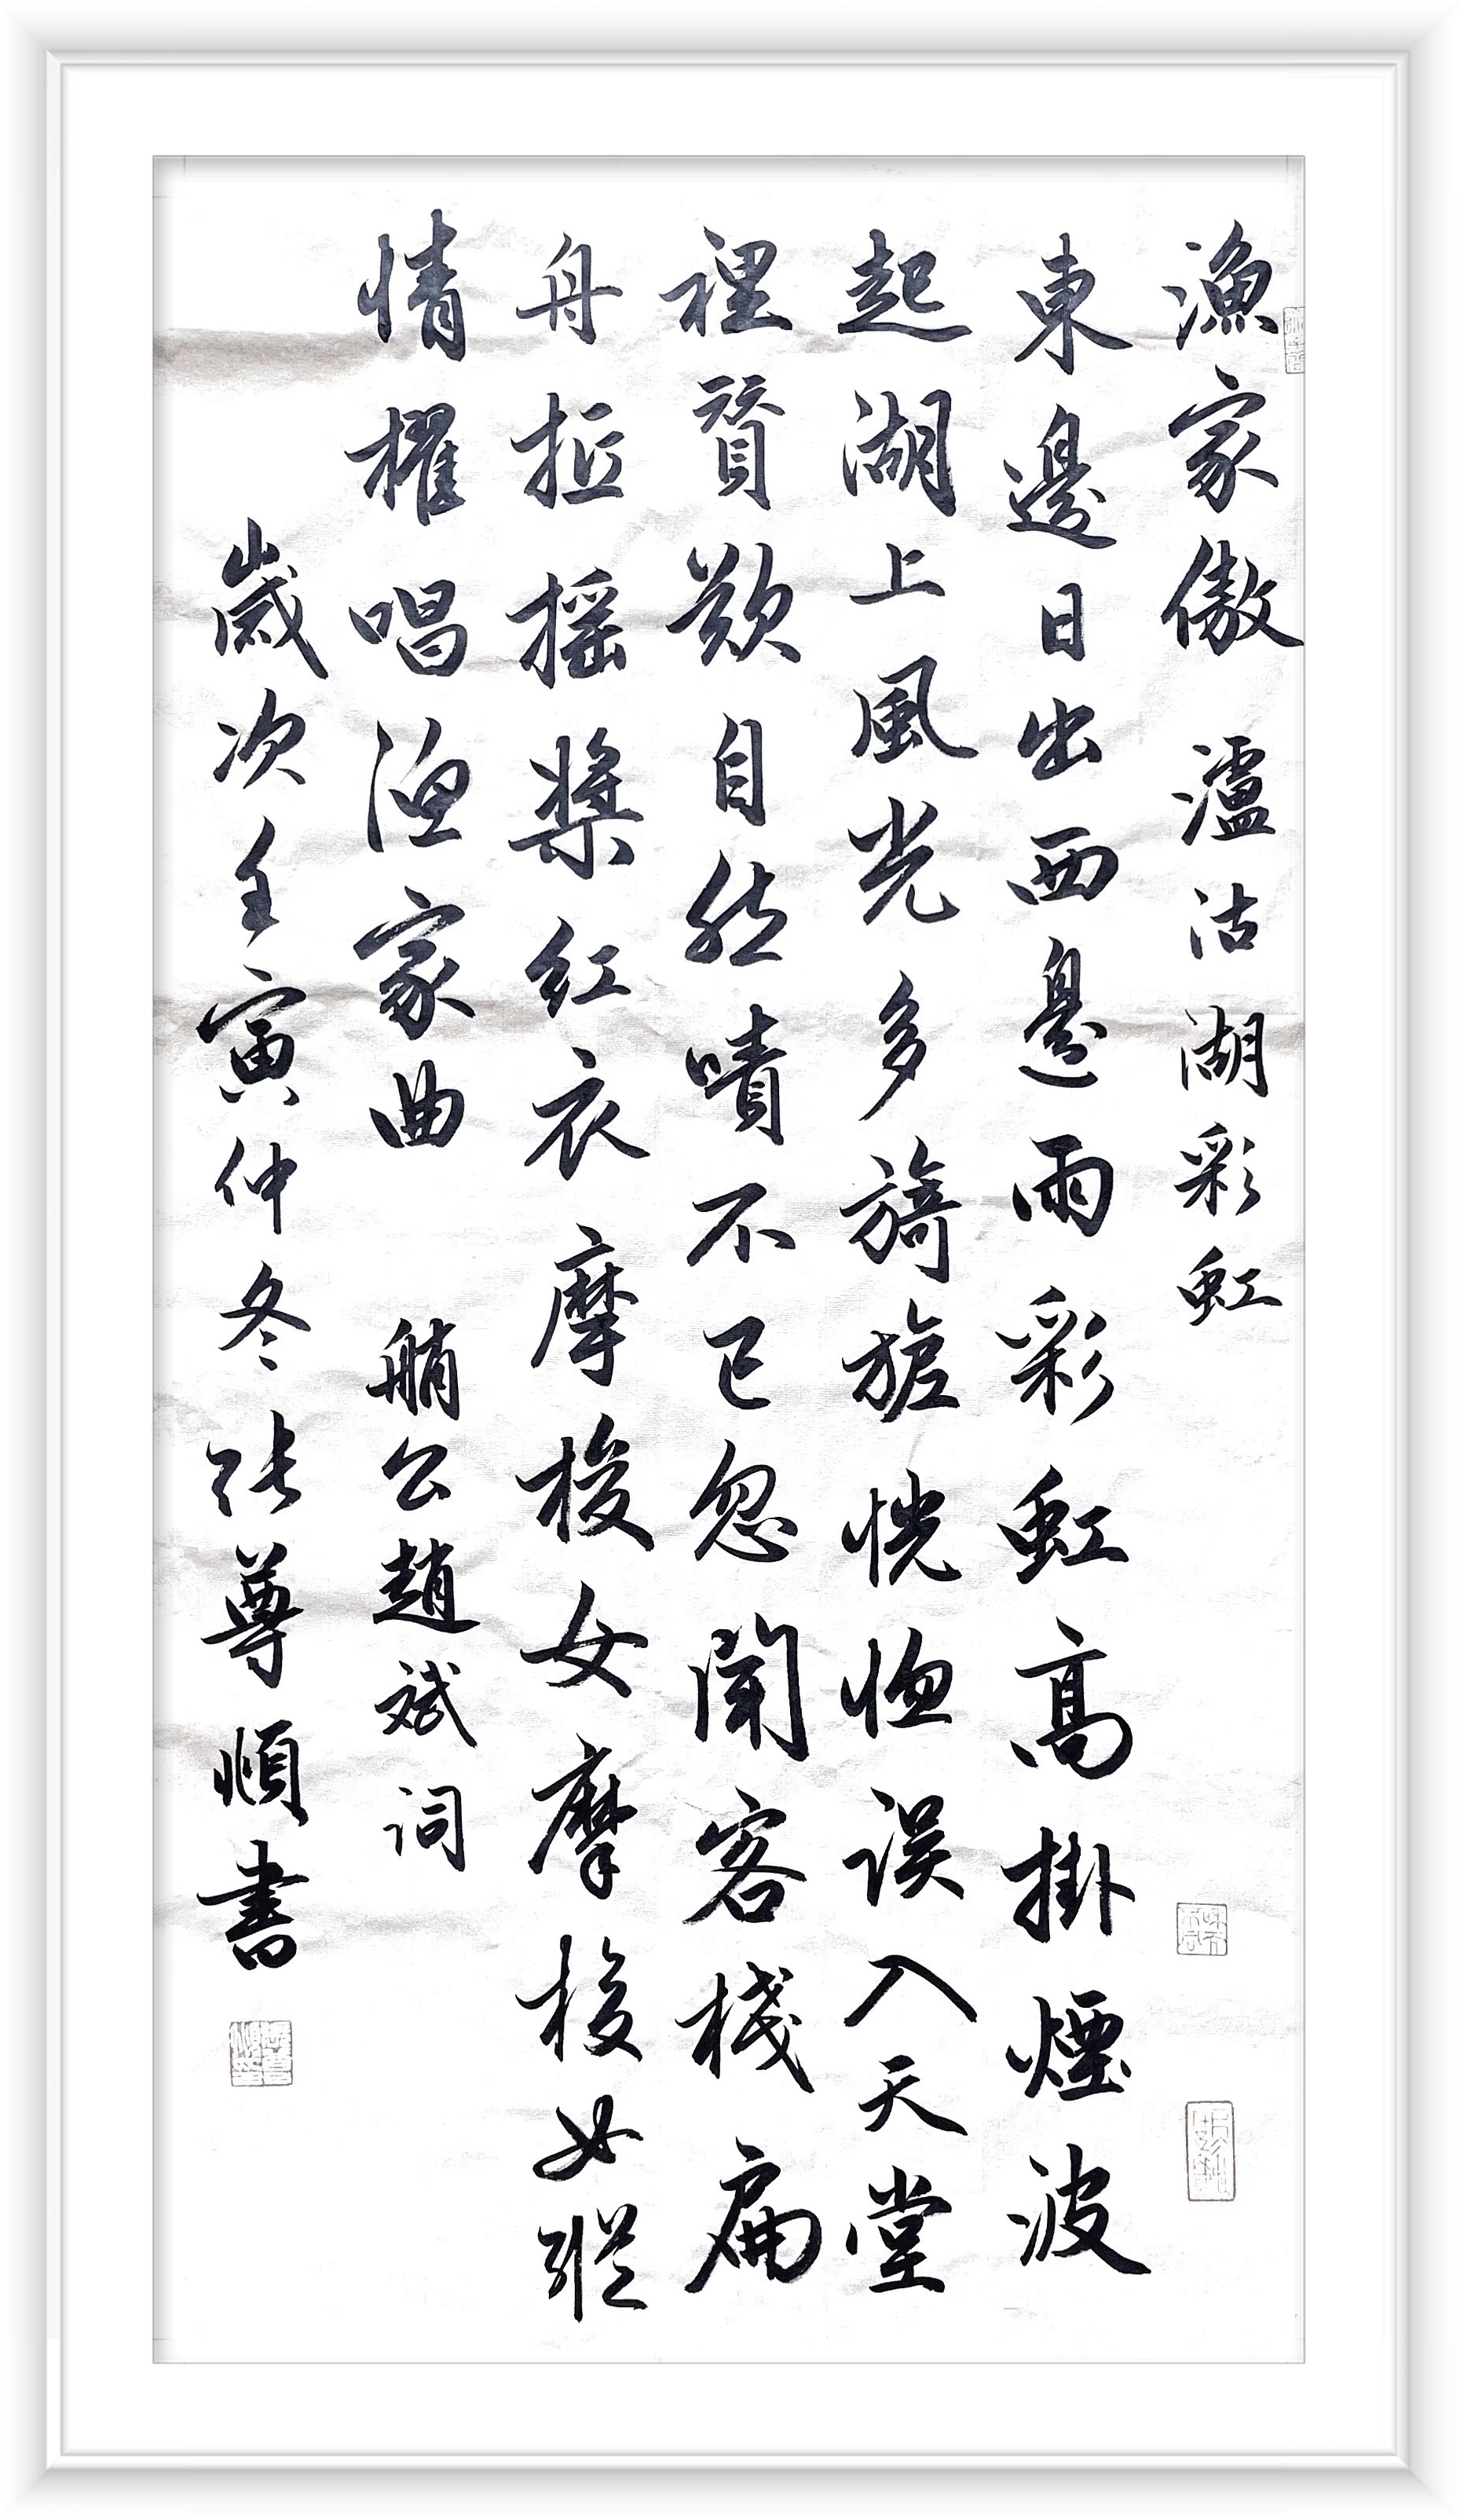 漁家傲 瀘沽湖彩虹
東邊日出西邊雨彩虹高掛煙波
起湖上風光多旖旎恍惚誤入天堂
裡賛歎自然嘖不已忽聞客棧扁
舟抵摇槳红衣摩梭女摩梭女縱
情櫂唱漁家曲 艄公趙斌詞
歲次壬寅仲冬張尊順書